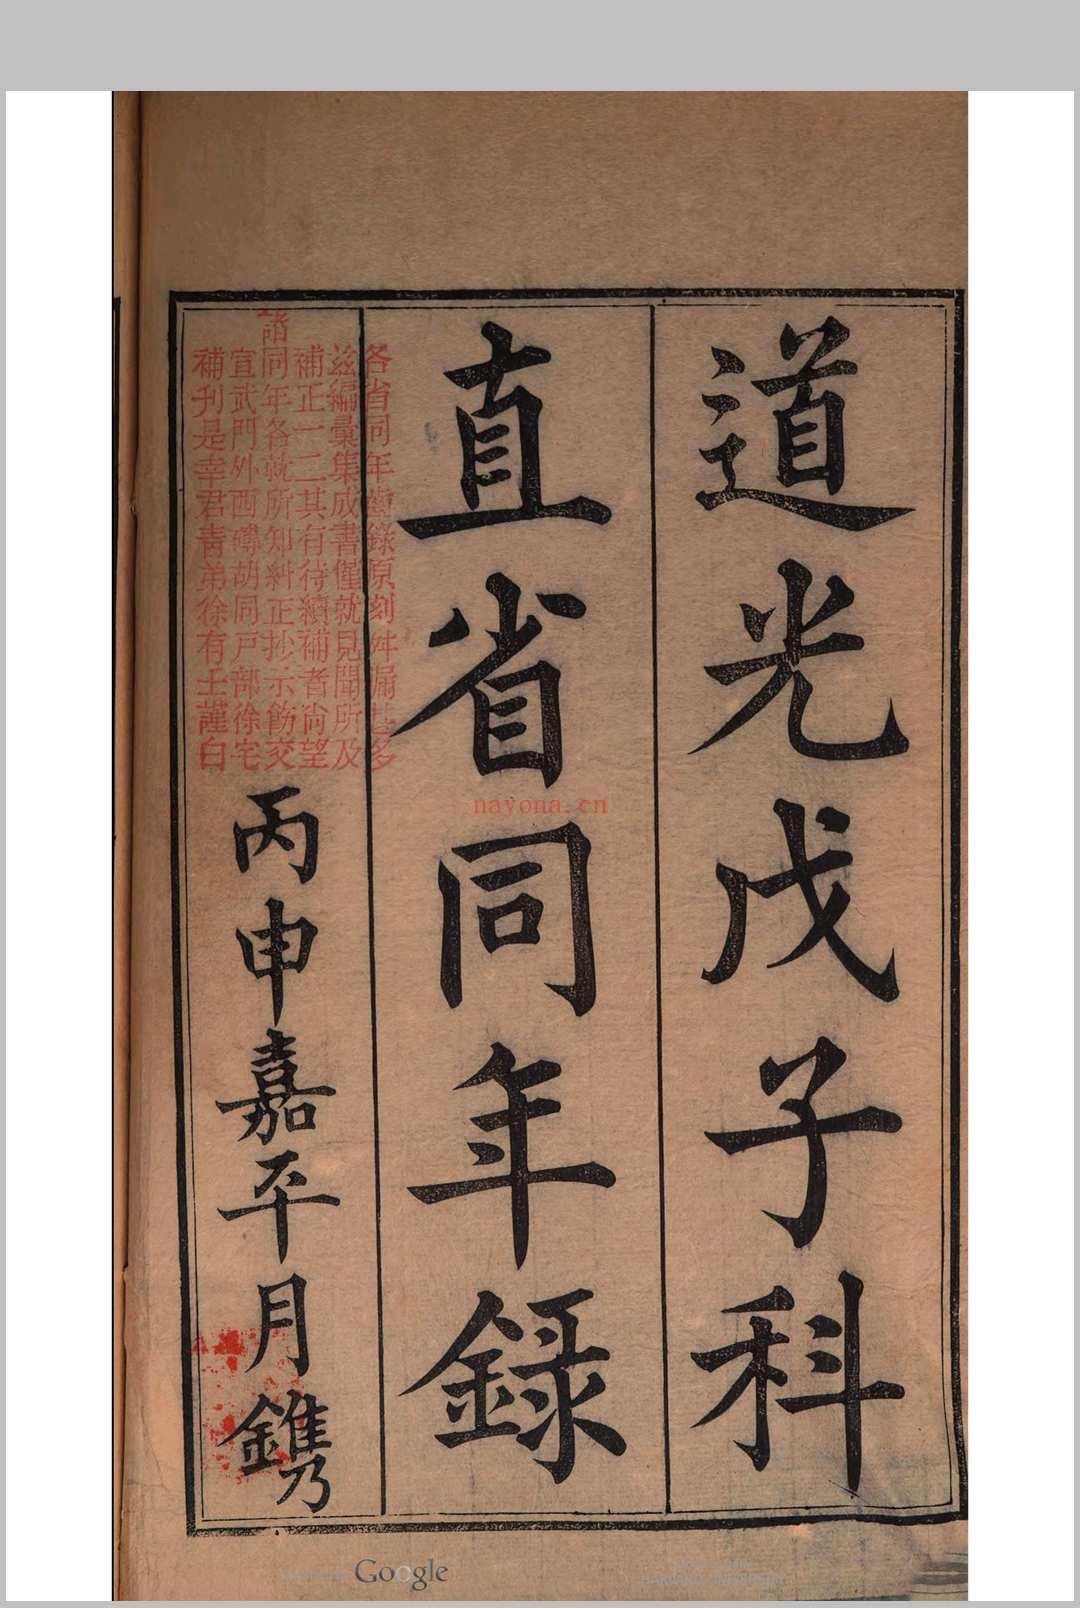 道光戊子科
直省同年錄
各省同年齒錄原刻舛漏甚多
茲編彙集成書僅就見聞所及
補正一二其有待續補者尚望
諸同年各就所知糾正抄示飭交
宣武門外西磚胡同戶部徐宅
補刊是幸君青弟徐有壬謹白
丙申嘉平月鐫
nayona.cn
Google